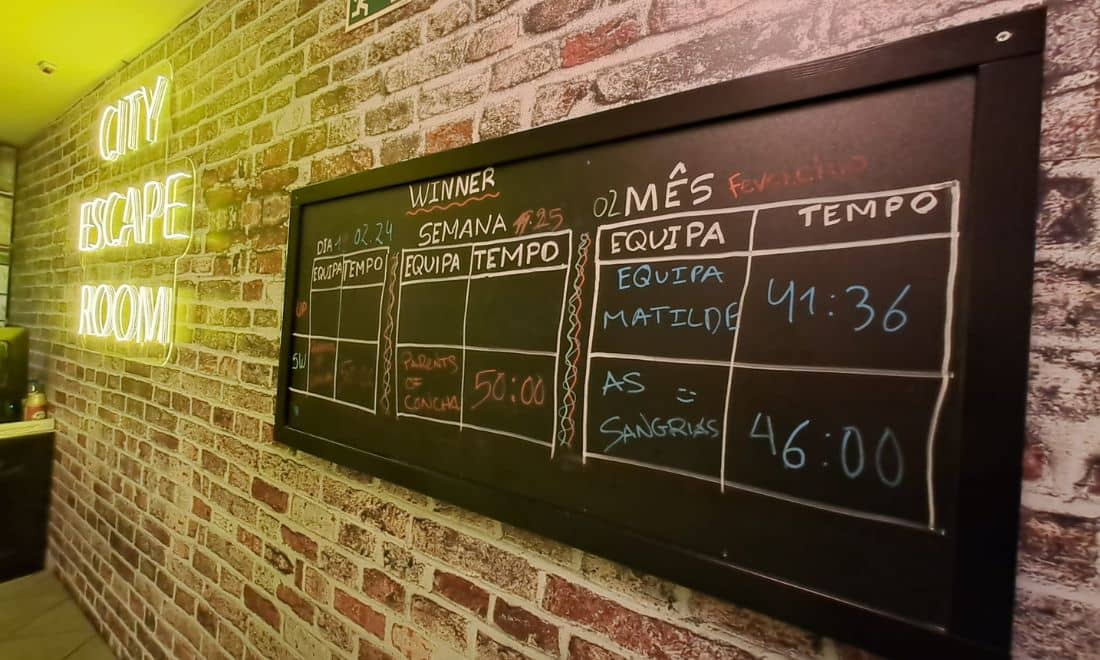 CITY
ESCAPE
ROOM
WINNER
DIA 02.24
EQUIPA TEMPO
UP
SW
SEMANA #25
EQUIPA TEMPO
PARENTS
OF
CONCHA
50:00
02 MÊS Fevereiro
EQUIPA TEMPO
EQUIPA
MATILDE
41:36
AS =
SANGRIAS
46:00